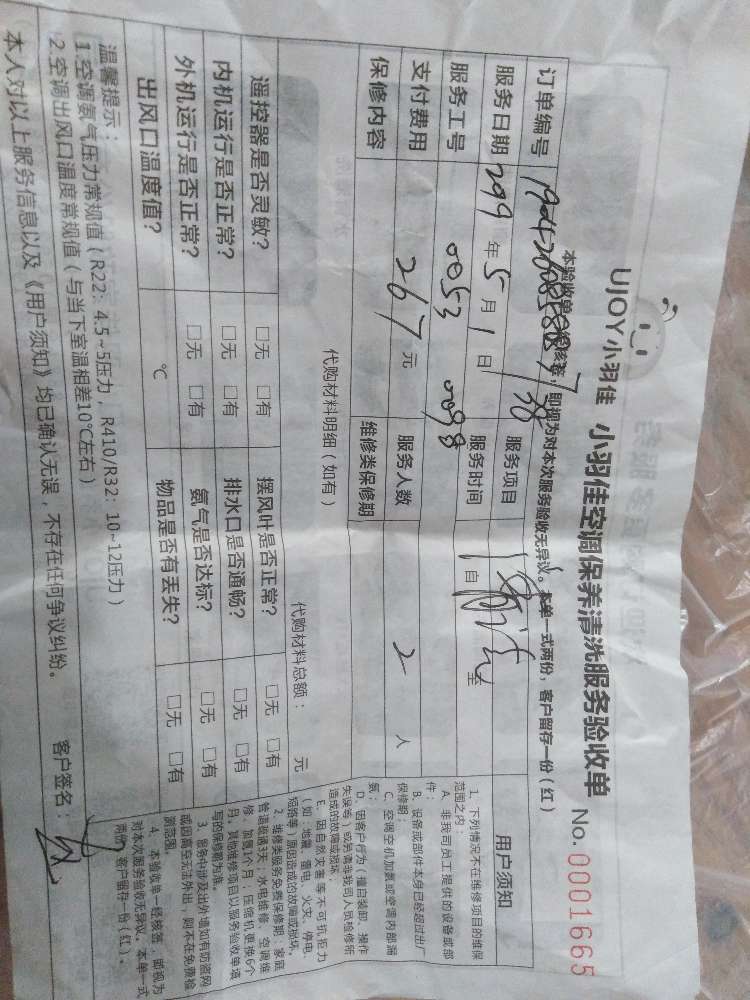 UJOY小羽佳 小羽佳空调保养清洗服务验收单 No. 0001665
本验收单 即视为对本次服务验收无异议。本单一式两份，客户留存一份（红）
订单编号 服务项目
服务日期 年5月1日 服务时间 自 至
服务工号 0053 0098
支付费用 267元 服务人数 2 人
保修内容 维修类保修期
代购材料明细（如有） 代购材料总额： 元
遥控器是否灵敏？ □无 □有 摆风叶是否正常？ □无 □有
内机运行是否正常？ □无 □有 排水口是否通畅？ □无 □有
外机运行是否正常？ □无 □有 氨气是否达标？ □无 □有
出风口温度值？ ℃ 物品是否有丢失？ □无 □有
温馨提示：
1.空调氨气压力常规值（R22：4.5~5压力，R410/R32：10~12压力）
2.空调出风口温度常规值（与当下室温相差10℃左右）
本人对以上服务信息以及《用户须知》均已确认无误，不存在任何争议纠纷。 客户签名：
用户须知
1、下列情况不在维修项目的维保
范围之内：
A、非我司员工提供的设备或部
件；
B、设备或部件本身已经超过出厂
保修期；
C、空调空机加氨或空调内部漏
氨；
D、因客户行为（擅自装卸、操作
失误等）或另请非我司人员检修所
造成的故障或损坏。
E、因自然灾害等不可抗拒力
（如：地震、雷电、火灾、停电、
短路等）原因造成的故障或损坏。
2、维修类服务免费保修期：家庭
管道疏通3天；水电维修、空调维
修、加氨1个月；压缩机更换6个
月，其他维修项目以服务验收单填
写的保修期为准。
3、服务中涉及出外墙如有防盗网
或因高空无法外出，则不在免费检
测范围。
4、本验收单一经核签，即视为
对本次服务验收无异议。本单一式
两份，客户留存一份（红）。